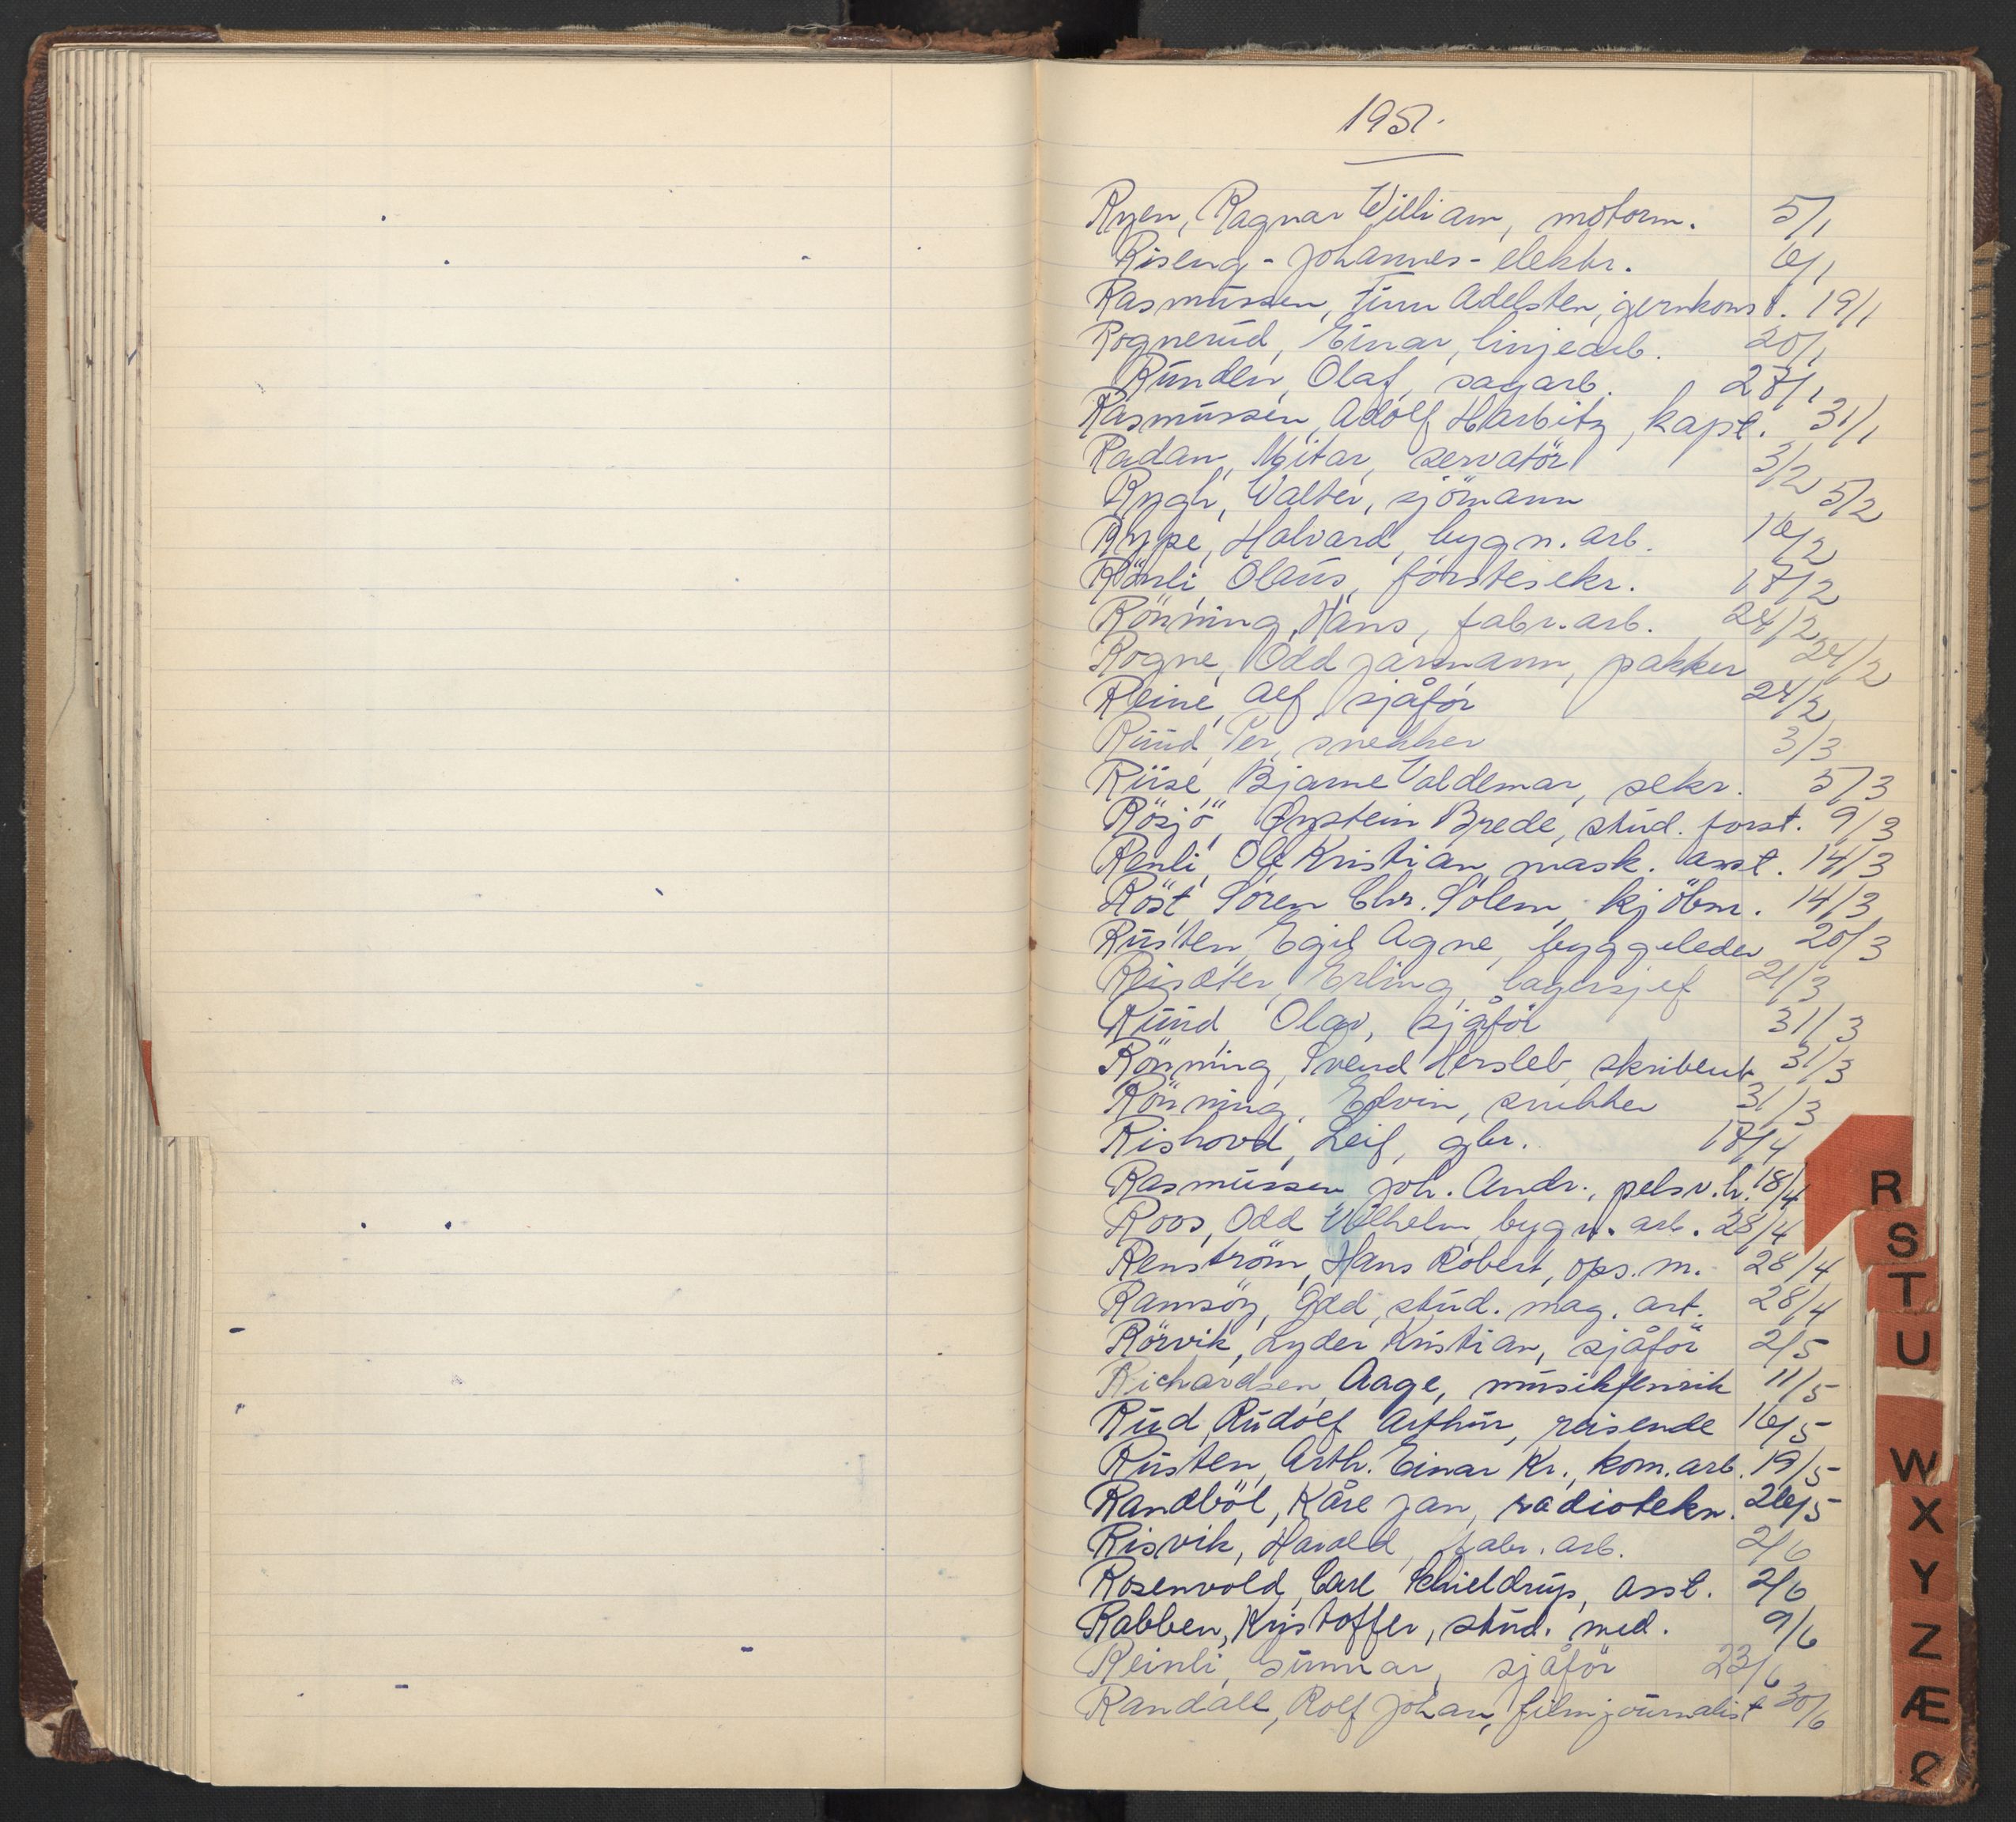 1951.
Ryen, Ragnar William, motorm. 5/1
Riseng - Johannes - elektr. 6/1
Rasmussen, Finn Adelsten, jernkonst. 19/1
Rognerud, Einar, linjearb. 20/1
Runden, Olaf, sagarb. 27/1
Rasmussen, Adolf Harbitz, kapt. 31/1
Radan, Mitar, servatör 3/2
Rygh, Walter, sjömann 5/2
Rype, Halvard, bygn. arb. 16/2
Rönli, Olaus, förstesekr. 17/2
Rönning, Hans, fabr. arb. 24/2
Rogne, Odd Jarmann, pakker 24/2
Reine, Alf, sjåför 24/2
Ruud, Per, snekker 3/3
Riise, Bjarne Valdemar, sekr. 5/3
Rösjö, Øystein Brede, stud. forst. 9/3
Renli, Ole Kristian, mask. asst. 14/3
Röst, Sören Chr. Solem, kjöbm. 14/3
Rusten, Egil Agne, byggeleder 20/3
Reisæter, Erling, lagersjef 21/3
Ruud, Olav, sjåför 31/3
Rönning, Svend Hersleb, skribent 31/3
Rönning, Edvin, snekker 31/3
Rishovd, Leif, gbr. 17/4
Rasmussen, Joh. Andr., pelsv.h. 18/4
Roos, Odd Wilhelm, bygn. arb. 28/4
Renström, Hans Robert, ops. m. 28/4
Ramsöy, Odd, stud. mag. art. 28/4
Rörvik, Lyder Kristian, sjåför 2/5
Richardsen, Aage, musikfenrik 11/5
Rud, Rudolf Arthur, reisende 16/5
Rusten, Arth. Einar Kr., kom. arb. 19/5
Randböl, Kåre Jan, radiotekn. 26/5
Risvik, Harald, fabr. arb. 2/6
Rosenvold, Carl Schieldrup, asst. 2/6
Rabben, Kristoffer, stud. med. 9/6
Reinli, Gunnar, sjåför 23/6
Randall, Rolf Johan, filmjournalist 30/6
R
S
T
U
W
X
Y
Z
Æ
Ø